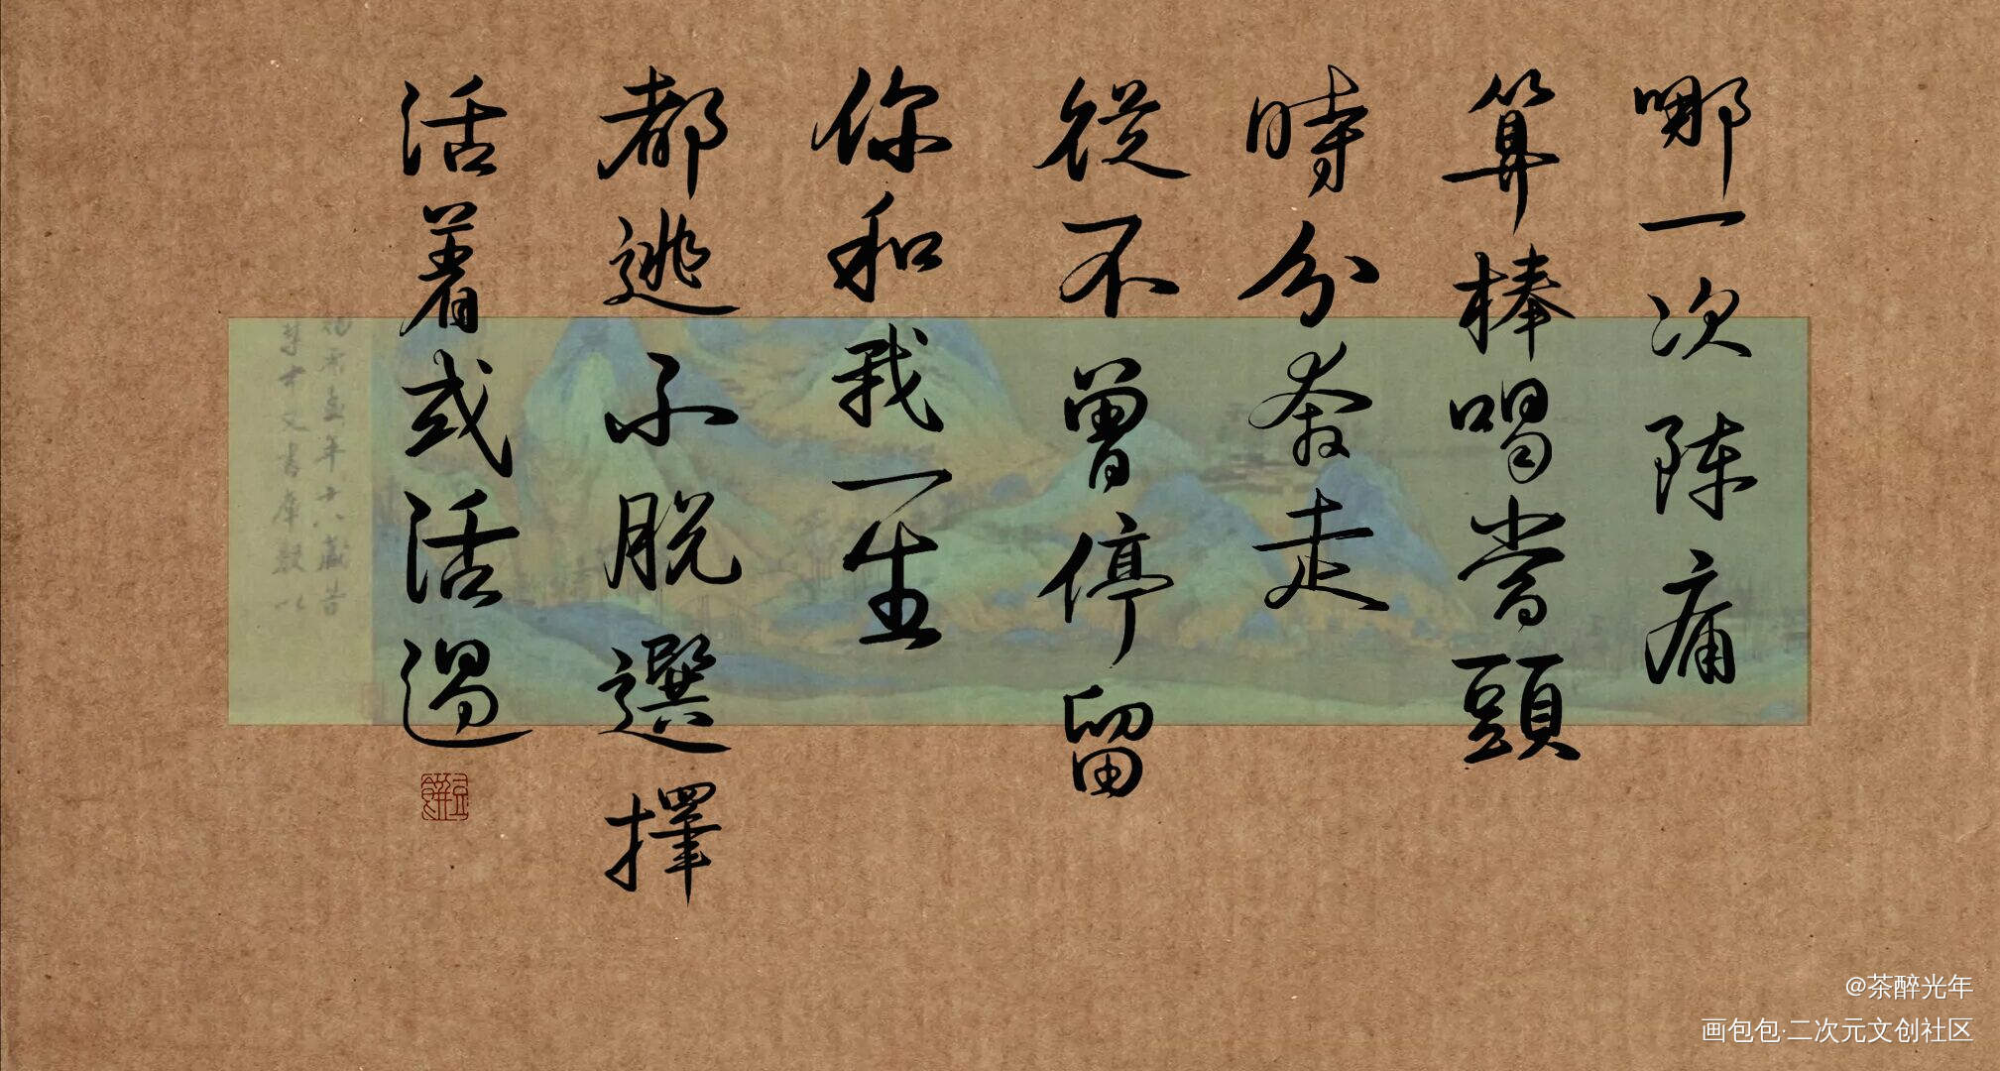 哪一次陣痛
算棒喝當頭
時分秒走
從不曾停留
你和我一生
都逃不脫選擇
活着或活過
@茶醉光年
画包包·二次元文创社区